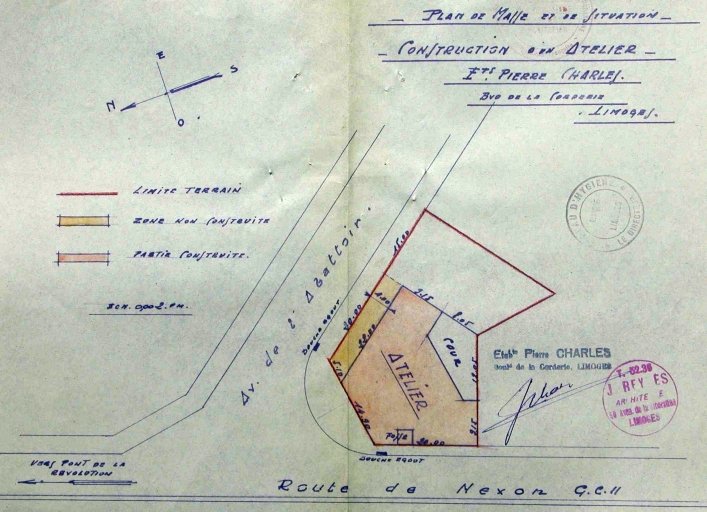 PLAN DE MASSE ET DE SITUATION
CONSTRUCTION D'UN ATELIER
ETS PIERRE CHARLES.
BVD DE LA CORDERIE
LIMOGES.
E
S
N
O.
LIMITE TERRAIN
ZONE NON CONSTRUITE
PARTIE CONSTRUITE.
ECH. 0,002 P.M.
Av. de l'Abattoir.
16.00
20.00
BOUCHE EGOUT
ATELIER
COUR
Fosse
20.00
BOUCHE EGOUT
Etabts Pierre CHARLES
Bould de la Corderie, LIMOGES
LE DIRECT
J. REY ES
LIMOGES
VERS PONT DE LA
REVOLUTION
Route de Nexon G.C.11